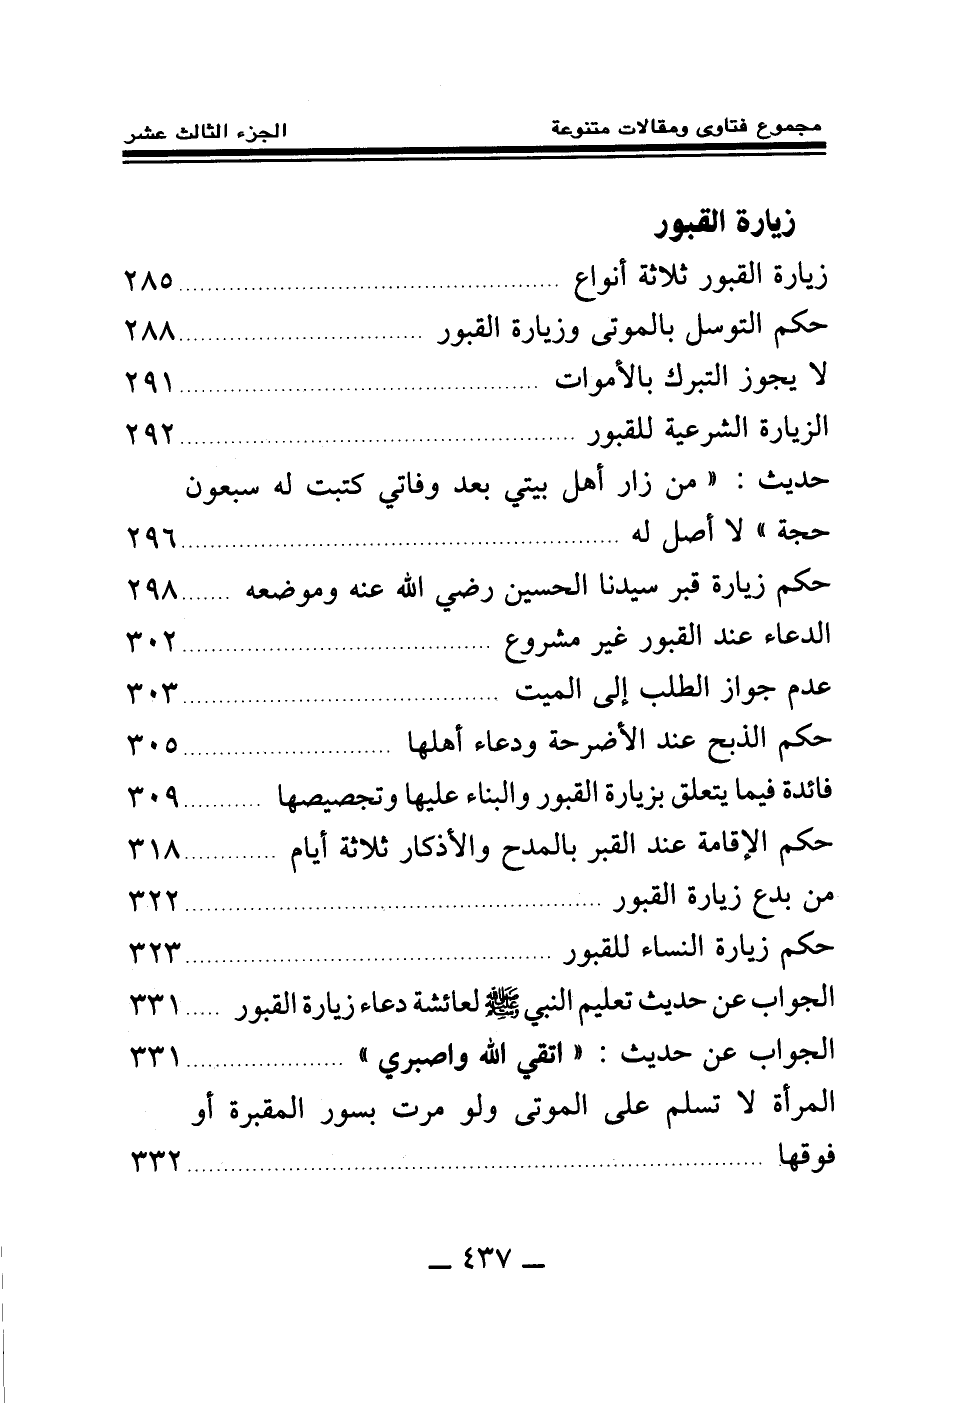 مجموع فتاوى ومقالات متنوعة الجزء الثالث عشر
زيارة القبور
زيارة القبور ثلاثة أنواع ................ ٢٨٥
حكم التوسل بالموتى وزيارة القبور ................ ٢٨٨
لا يجوز التبرك بالأموات ................ ٢٩١
الزيارة الشرعية للقبور ................ ٢٩٢
حديث : « من زار أهل بيتي بعد وفاتي كتبت له سبعون
حجة » لا أصل له ................ ٢٩٦
حكم زيارة قبر سيدنا الحسين رضي الله عنه وموضعه ....... ٢٩٨
الدعاء عند القبور غير مشروع ................ ٣٠٢
عدم جواز الطلب إلى الميت ................ ٣٠٣
حكم الذبح عند الأضرحة ودعاء أهلها ................ ٣٠٥
فائدة فيما يتعلق بزيارة القبور والبناء عليها وتجصيصها ........... ٣٠٩
حكم الإقامة عند القبر بالمدح والأذكار ثلاثة أيام ............. ٣١٨
من بدع زيارة القبور ................ ٣٢٢
حكم زيارة النساء للقبور ................ ٣٢٣
الجواب عن حديث تعليم النبي ﷺ لعائشة دعاء زيارة القبور ..... ٣٣١
الجواب عن حديث : « اتقي الله واصبري » ................ ٣٣١
المرأة لا تسلم على الموتى ولو مرت بسور المقبرة أو
فوقها ................ ٣٣٢
ـ ٤٣٧ ـ